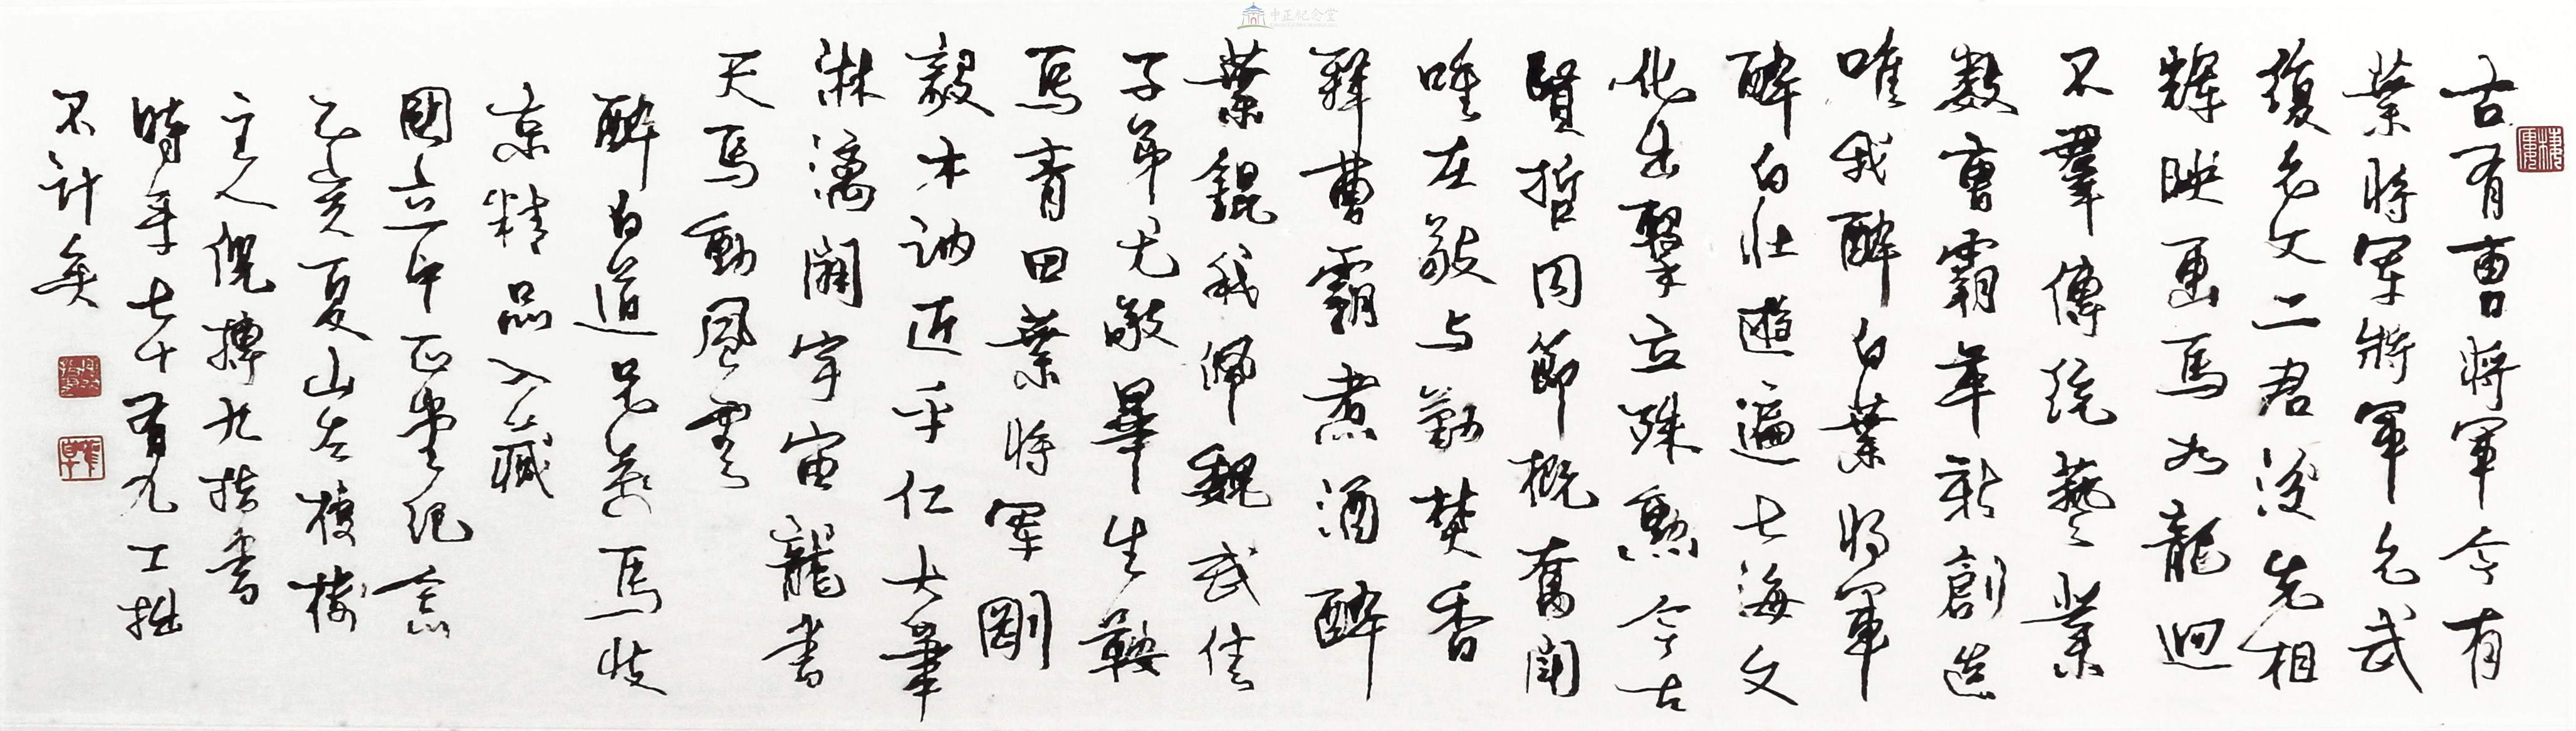 中正紀念堂
古有曹將軍今有
葉將軍將軍允武
復允文二君後先相
輝映畫馬如龍迥
不羣傳統藝業
數曹霸革新創造
唯我醉白葉將軍
醉白壯遊遍七海文
化出擊立殊勲今古
賢哲同節概奮聞
唯在敬与勤焚香
拜曹霸煮酒醉
葉錕我佩魏武佳
子弟尤敬畢生鞍
馬青田葉將軍剛
毅木訥近乎仁大筆
淋漓闊宇宙龍書
天馬動風雲
醉白道兄 馬
京精品入藏
國立中正堂紀念
乙亥夏山左棲
主人倪摶九撰書
時年七十有九工拙
不計矣